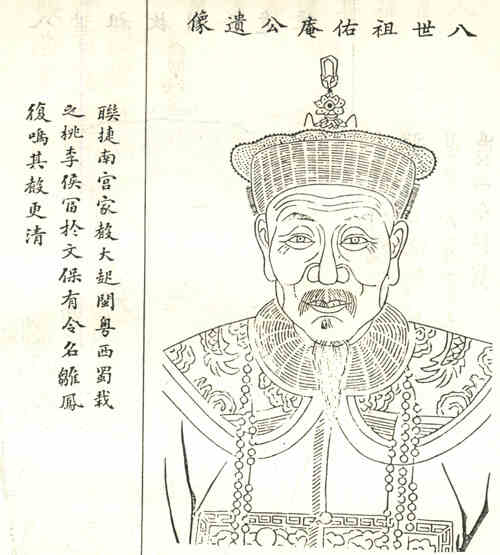 八世祖佑庵公遺像
聯捷南宮家聲大起閩粵西蜀栽
之桃李侯冨於文保有令名雛鳳
復鳴其聲更清